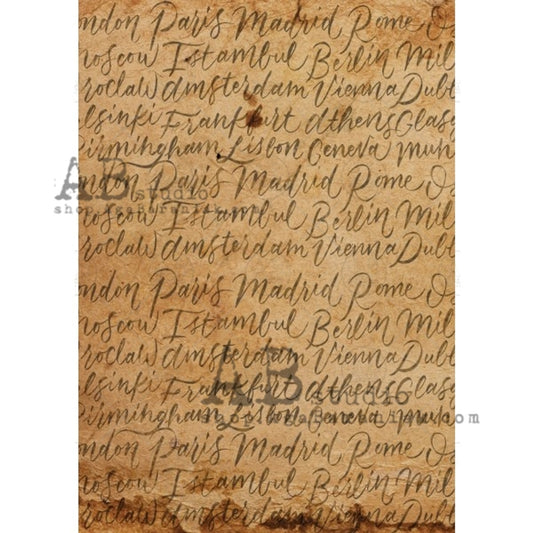 ondon Paris Madrid Rome Os
noscow Istambul Berlin Mil
roclaw Amsterdam Vienna Dubl
elsinki Frankfurt Athens Glasg
Birmingham Lisbon Geneva Mun
ondon Paris Madrid Rome Os
AB studio
noscow Istambul Berlin Mil
roclaw Amsterdam Vienna Dubl
ondon Paris Madrid Rome Os
noscow Istambul Berlin Mil
roclaw Amsterdam Vienna Dubl
elsinki Frankfurt Athens Glasg
AB studio
Birmingham Lisbon Geneva Mun
ondon Paris Madrid Rome Os
noscow Istambul Berlin Mil
roclaw Amsterdam Vienna Dubl